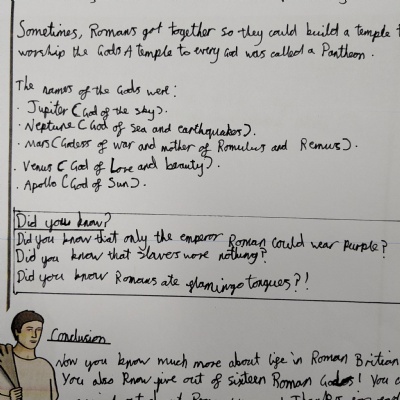 Sometimes, Romans got together so they could build a temple t
worship the Gods A temple to every God was called a Pantheon.
The names of the Gods were:
· Jupiter (God of the sky).
· Neptune (God of Sea and earthquakes).
· Mars (Godess of war and mother of Romulus and Remus).
· Venus (God of Love and beauty).
· Apollo (God of Sun).
Did you know?
Did you know that only the emperor Roman could wear purple?
Did you know that Slavers wore nothing?
Did you know Romans ate flamingo tongues?!
Conclusion
Now you know much more about life in Roman Britian
You also Know five out of sixteen Roman Gods! You c